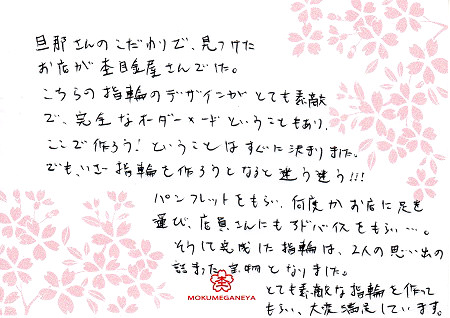 旦那さんのこだわりで、見つけた
お店が杢目金屋さんでした。
こちらの指輪のデザインがとても素敵
で、完全なオーダーメードということもあり、
ここで作ろう!ということはすぐに決まりました。
でも、いざ指輪を作ろうとなると迷う迷う!!!
パンフレットをもらい、何度かお店に足を
運び、店員さんにもアドバイスをもらい…。
そうして完成した指輪は、2人の思い出の
詰まった宝物となりました。
とても素敵な指輪を作って
もらい、大変満足しています。
MOKUMEGANEYA